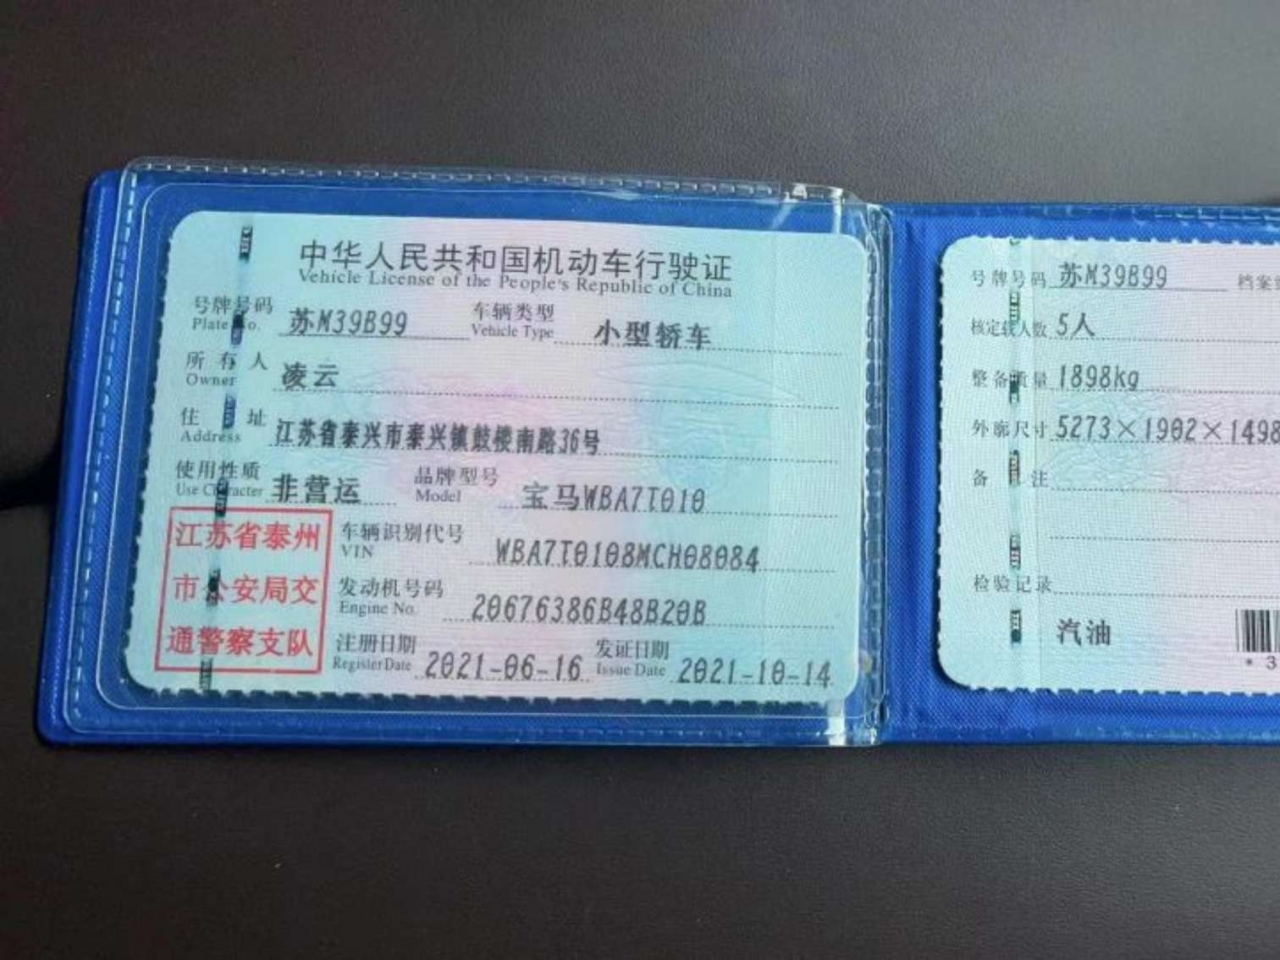 中华人民共和国机动车行驶证
Vehicle License of the People's Republic of China
号牌号码 苏M39B99 车辆类型 小型轿车
Plate No. Vehicle Type
所有人 凌云
Owner
住址 江苏省泰兴市泰兴镇鼓楼南路36号
Address
使用性质 非营运 品牌型号 宝马WBA7T010
Use Character Model
江苏省泰州
市公安局交
通警察支队
车辆识别代号 WBA7T0108MCH08084
VIN
发动机号码 20676386B48B20B
Engine No.
注册日期 2021-06-16 发证日期 2021-10-14
Register Date Issue Date
号牌号码 苏M39B99 档案
核定载人数 5人
整备质量 1898kg
外廓尺寸 5273×1902×1498
备注
检验记录
汽油
*3